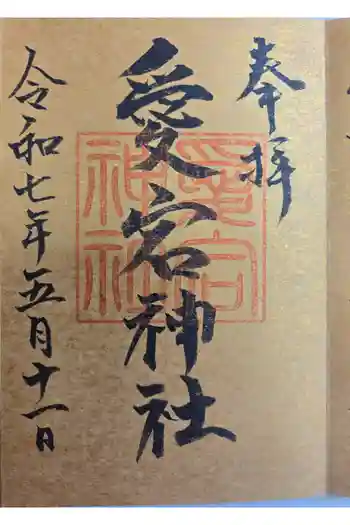 奉拝
愛宕神社
愛宕神社
令和七年五月十一日